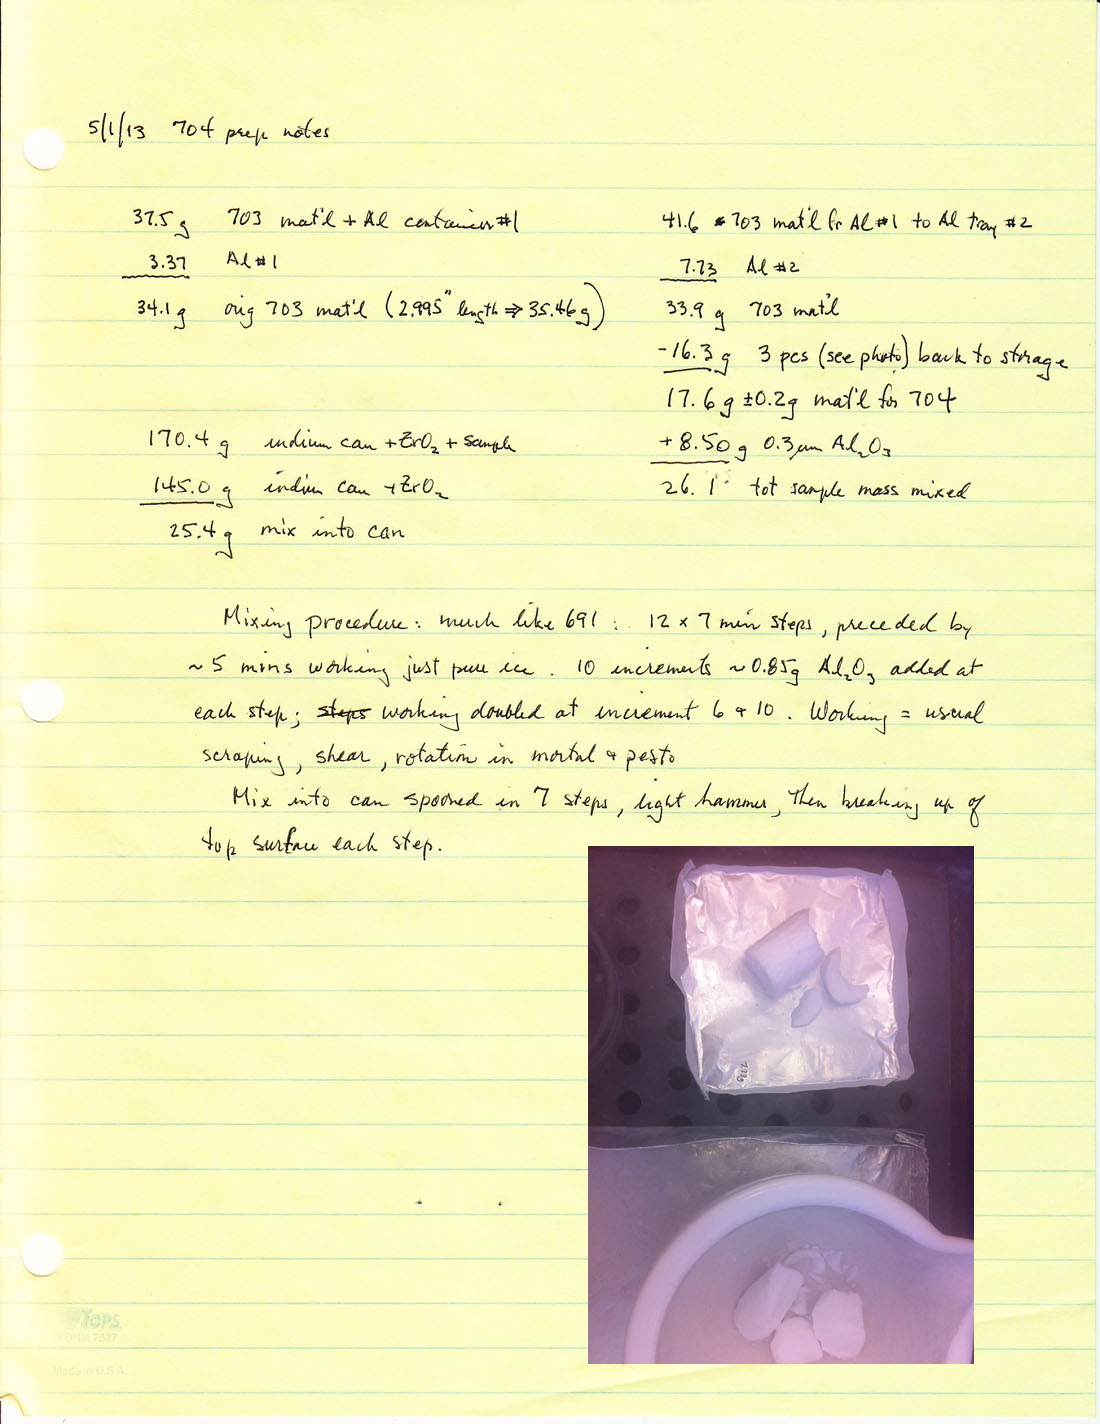 5/1/13 704 prep notes
37.5 g 703 mat'l + Al container #1
3.37 Al #1
34.1 g orig 703 mat'l (2.995" length ⇒ 35.46 g)
41.6 703 mat'l fr Al #1 to Al tray #2
7.73 Al #2
33.9 g 703 mat'l
-16.3 g 3 pcs (see photo) back to storage
17.6 g ±0.2g mat'l for 704
+8.50 g 0.3 µm Al₂O₃
26.1 tot sample mass mixed
170.4 g indium can + ZrO₂ + sample
145.0 g indium can + ZrO₂
25.4 g mix into can
Mixing procedure: much like 691: 12 x 7 min steps, preceded by
~ 5 mins working just pure ice. 10 increments ~0.85g Al₂O₃ added at
each step; steps working doubled at increment 6 & 10. Working = usual
scraping, shear, rotation in mortal & pesto
Mix into can spooned in 7 steps, light hammer, then breaking up of
top surface each step.
TOPS
FORM 7527
Made in U.S.A.